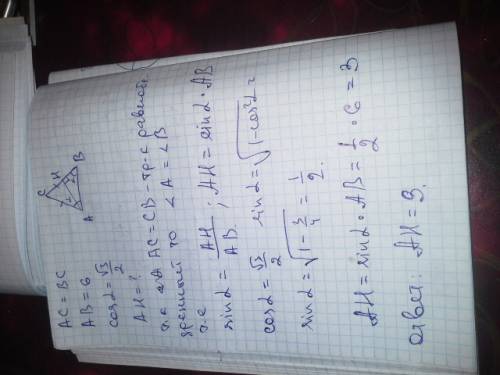 AC = BC
AB = 6
cos α = √3/2
AH = ?
C
H
A
B
т.к. AC = CB – тр-к равноб.
то ∠A = ∠B
т.е
sin α = AH/AB ; AH = sin α · AB
cos α = √3/2 sin α = √1-cos²α =
sin α = √1 - 3/4 = 1/2.
AH = sin α · AB = 1/2 · 6 = 3
Ответ: AH = 3.